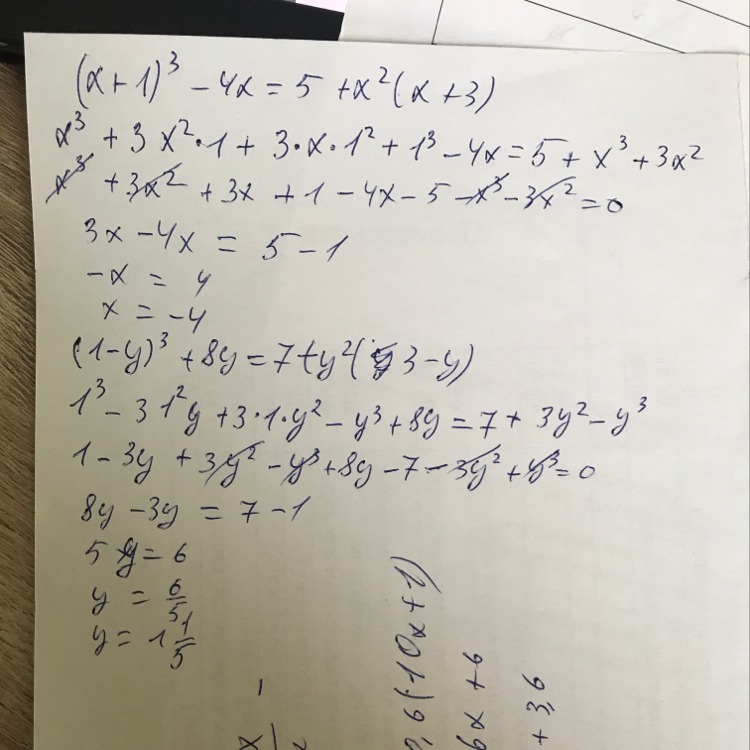 (x+1)³ - 4x = 5 + x²(x+3)
x³ + 3x²·1 + 3·x·1² + 1³ - 4x = 5 + x³ + 3x²
x³ + 3x² + 3x + 1 - 4x - 5 - x³ - 3x² = 0
3x - 4x = 5 - 1
-x = 4
x = -4
(1-y)³ + 8y = 7 + y²(3-y)
1³ - 3 1²y + 3·1·y² - y³ + 8y = 7 + 3y² - y³
1 - 3y + 3y² - y³ + 8y - 7 - 3y² + y³ = 0
8y - 3y = 7 - 1
5y = 6
y = 6/5
y = 1 1/5
6x + 6
+ 3,6